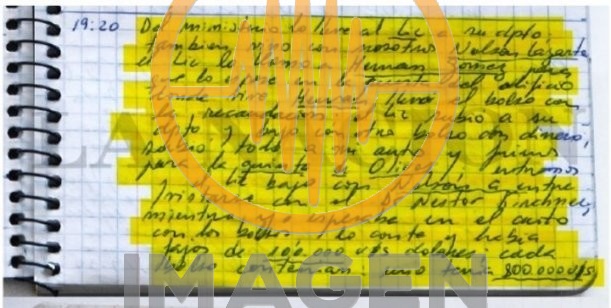 19:20 Del ministerio lo llevé al Lic a su dpto,
también vino con nosotros Nelson Lazarte
el Lic lo llamó a Hernan Gomez para
que lo espere en la puerta del edificio
donde vive Hernan llevó el bolso con
la recaudación el Lic subió a su
dpto y bajó con otro bolso con dinero,
todo a mi auto y fuimos
para la quinta de Olivos, entramos
Lic bajó con
con el Dr Nestor Kirchner,
mientras yo esperaba en el auto
con los bolsos lo conté y había
fajos de 100.000 u$s dolares cada
bolso contenían; uno tenía 800.000 u$s
LA NACION
IMAGEN